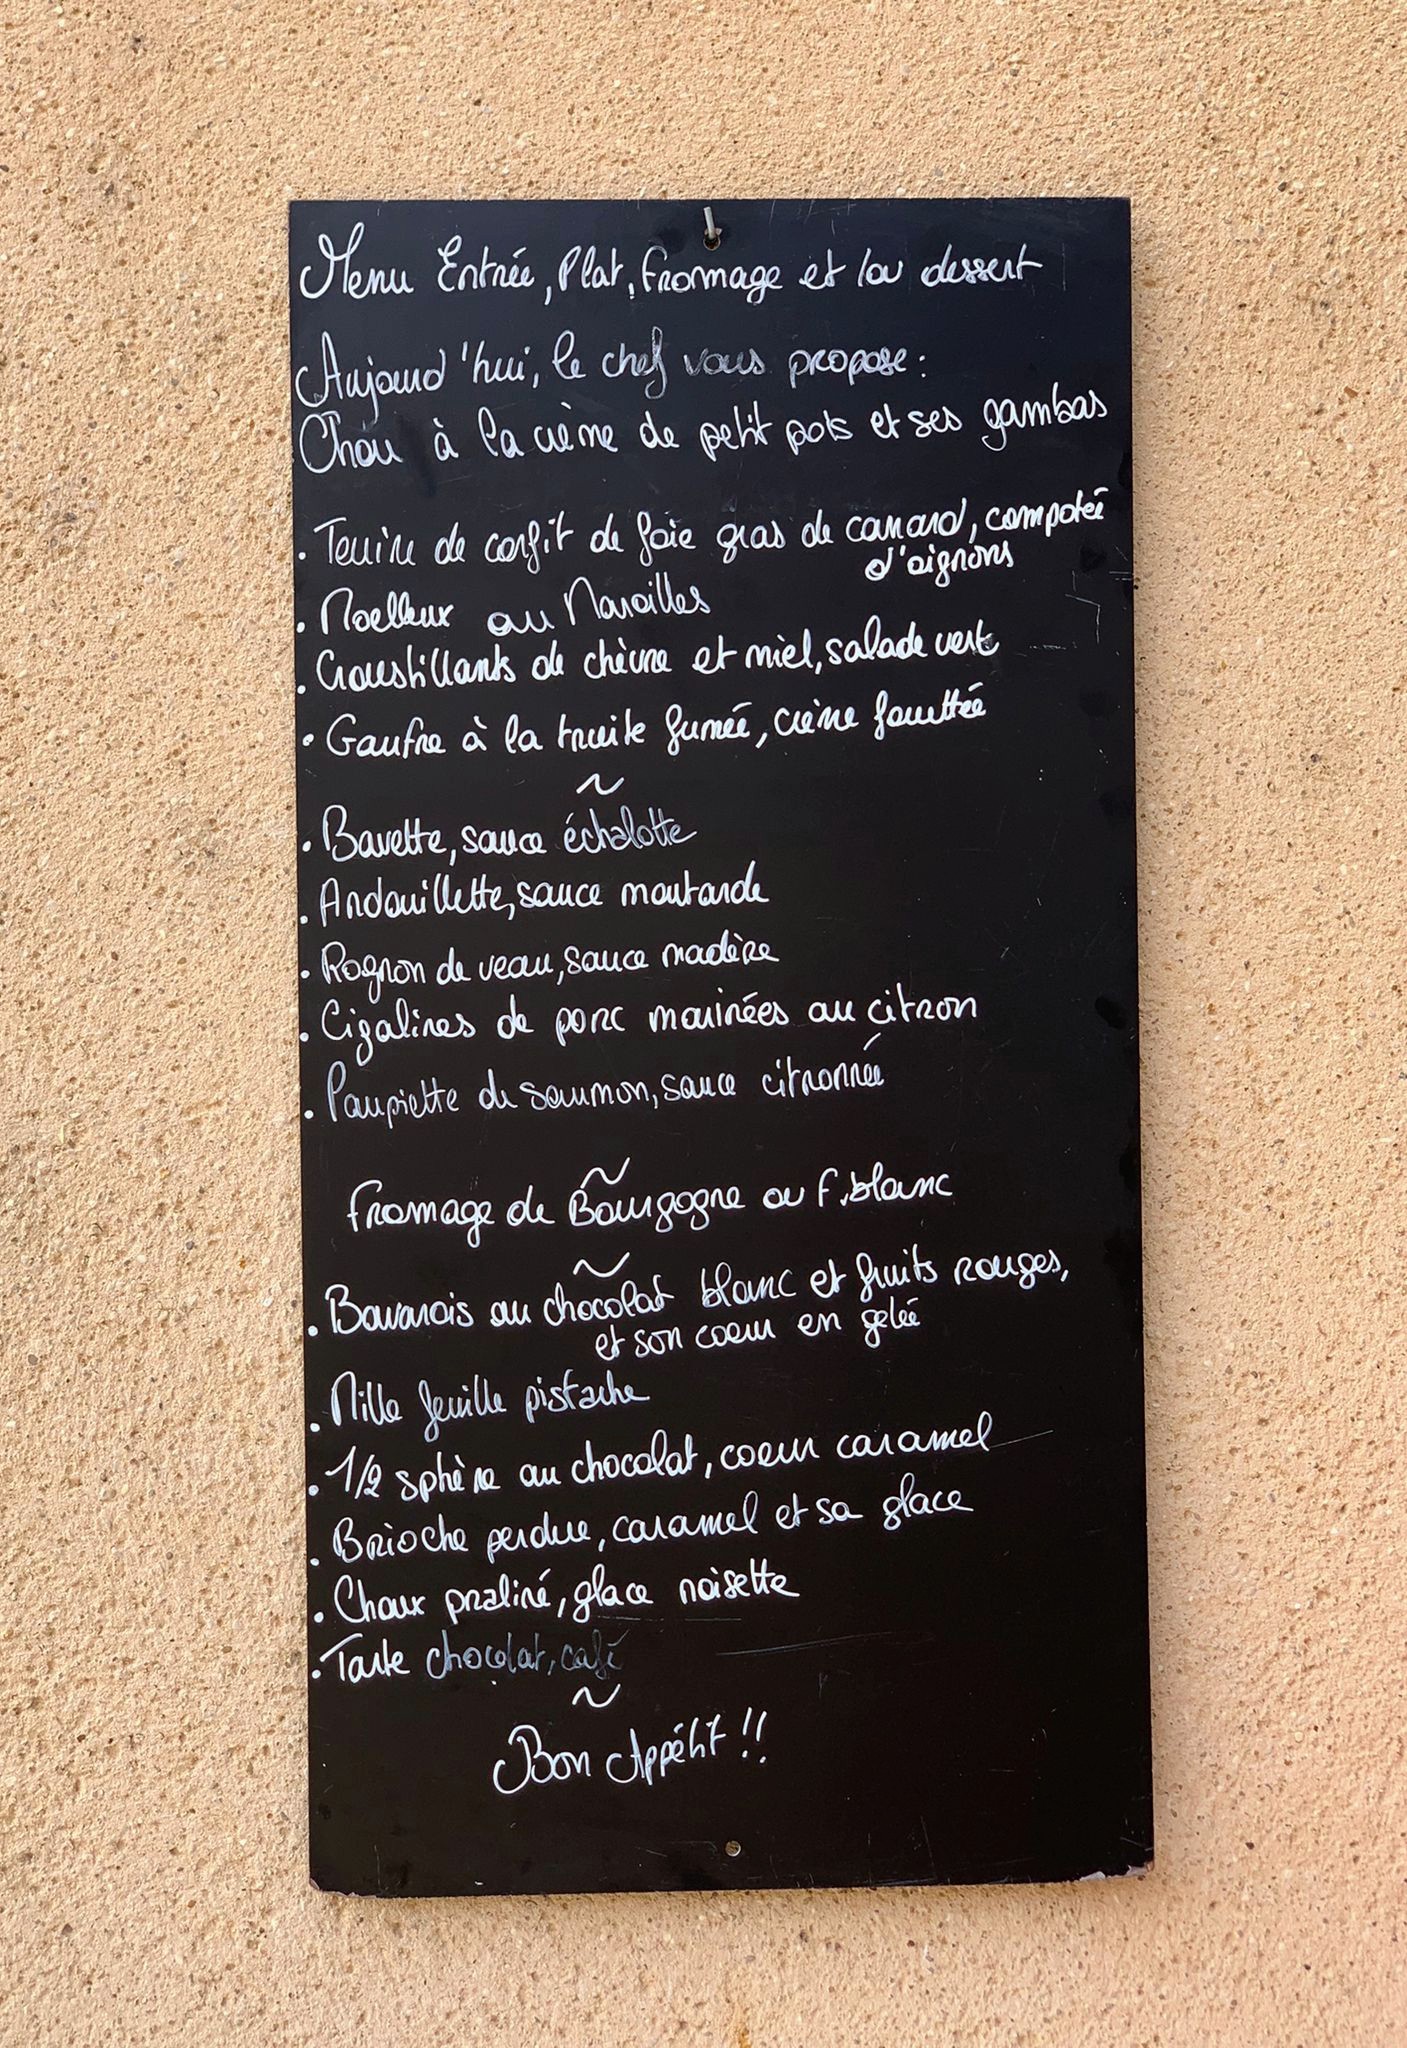 Menu Entrée, Plat, Fromage et/ou dessert
Aujourd'hui, le chef vous propose :
Chou à la crème de petit pois et ses gambas
. Terrine de confit de foie gras de canard, compotée
d'oignons
. Moelleux au Maroilles
. Croustillants de chèvre et miel, salade verte
. Gaufre à la truite fumée, crème fouettée
~
. Bavette, sauce échalotte
. Andouillette, sauce moutarde
. Rognon de veau, sauce madère
. Cigalines de porc marinées au citron
. Paupiette de saumon, sauce citronnée
~
Fromage de Bourgogne ou F. blanc
~
. Bavarois au chocolat blanc et fruits rouges,
et son coeur en gelée
. Mille feuille pistache
. 1/2 sphère au chocolat, coeur caramel
. Brioche perdue, caramel et sa glace
. Choux praliné, glace noisette
. Tarte chocolat, café
~
Bon Appétit !!